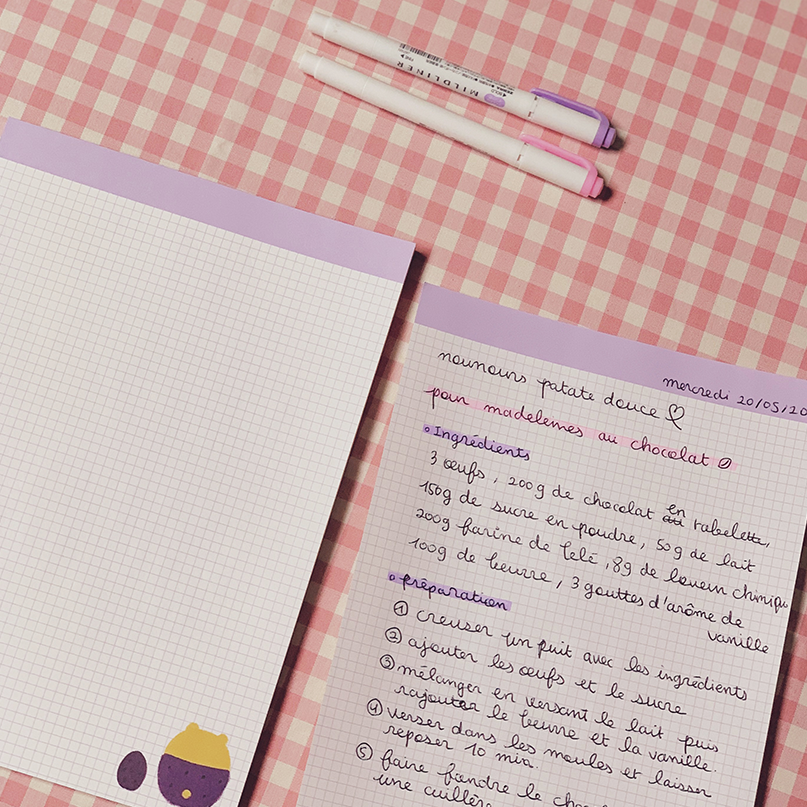 MILDLINER
mercredi 20/05/20
nounours patate douce
pour madeleines au chocolat
Ingrédients
3 œufs, 200g de chocolat en tablette,
150g de sucre en poudre, 50g de lait
200g farine de blé, 8g de levein chimiqu
100g de beurre, 3 gouttes d'arôme de
vanille
préparation
① creuser un puit avec les ingrédients
② ajouter les œufs et le sucre
③ mélanger en versant le lait puis
rajouter le beurre et la vanille.
④ verser dans les moules et laisser
reposer 10 min.
⑤ faire fondre le
une cuillère